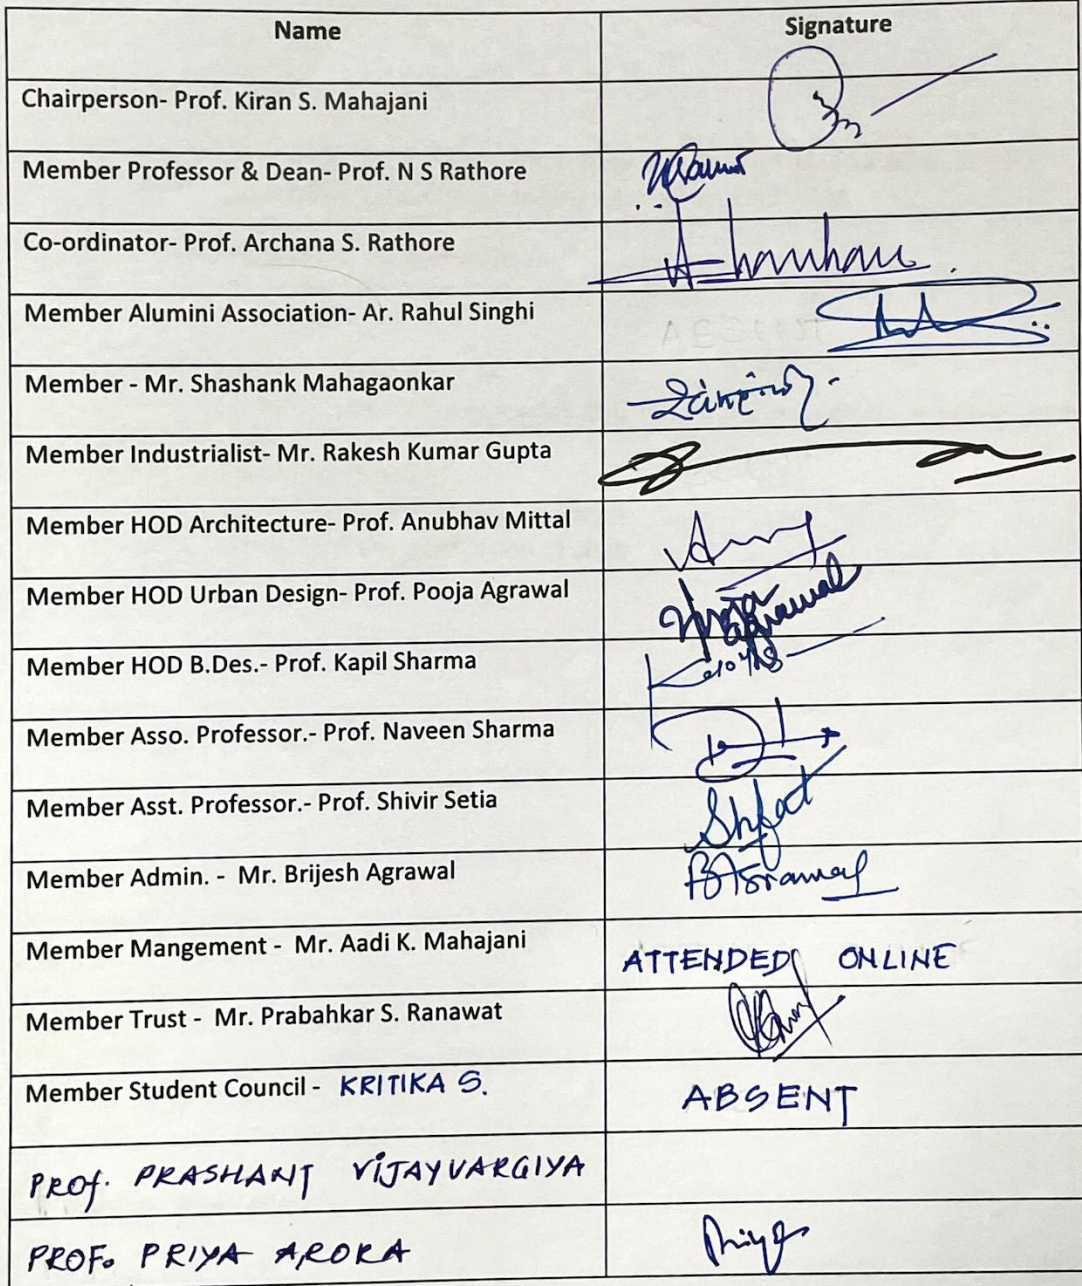 Name Signature
Chairperson- Prof. Kiran S. Mahajani
Member Professor & Dean- Prof. N S Rathore
Co-ordinator- Prof. Archana S. Rathore
Member Alumini Association- Ar. Rahul Singhi
Member - Mr. Shashank Mahagaonkar
Member Industrialist- Mr. Rakesh Kumar Gupta
Member HOD Architecture- Prof. Anubhav Mittal
Member HOD Urban Design- Prof. Pooja Agrawal
Member HOD B.Des.- Prof. Kapil Sharma
Member Asso. Professor.- Prof. Naveen Sharma
Member Asst. Professor.- Prof. Shivir Setia
Member Admin. - Mr. Brijesh Agrawal
Member Mangement - Mr. Aadi K. Mahajani ATTENDED ONLINE
Member Trust - Mr. Prabahkar S. Ranawat
Member Student Council - KRITIKA S. ABSENT
PROf. PRASHANT ViJAYVARGIYA
PROF. PRIYA ARORA Priya